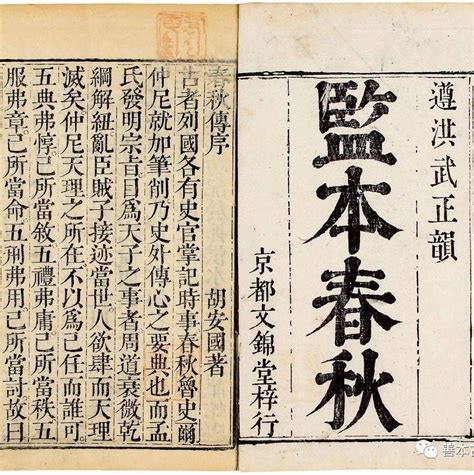 遵洪武正韻
監本春秋
京都文錦堂梓行
春秋傳序
胡安國著
古者列國各有史官掌記時事春秋魯史爾
仲尼就加筆削乃史外傳心之要典也而孟
氏發明宗旨目爲天子之事者周道衰微乾
綱解紐亂臣賊子接迹當世人欲肆而天理
滅矣仲尼天理之所在不以爲己任而誰可
五典弗惇己所當敘五禮弗庸己所當秩五
服弗章己所當命五刑弗用己所當討故曰
善本